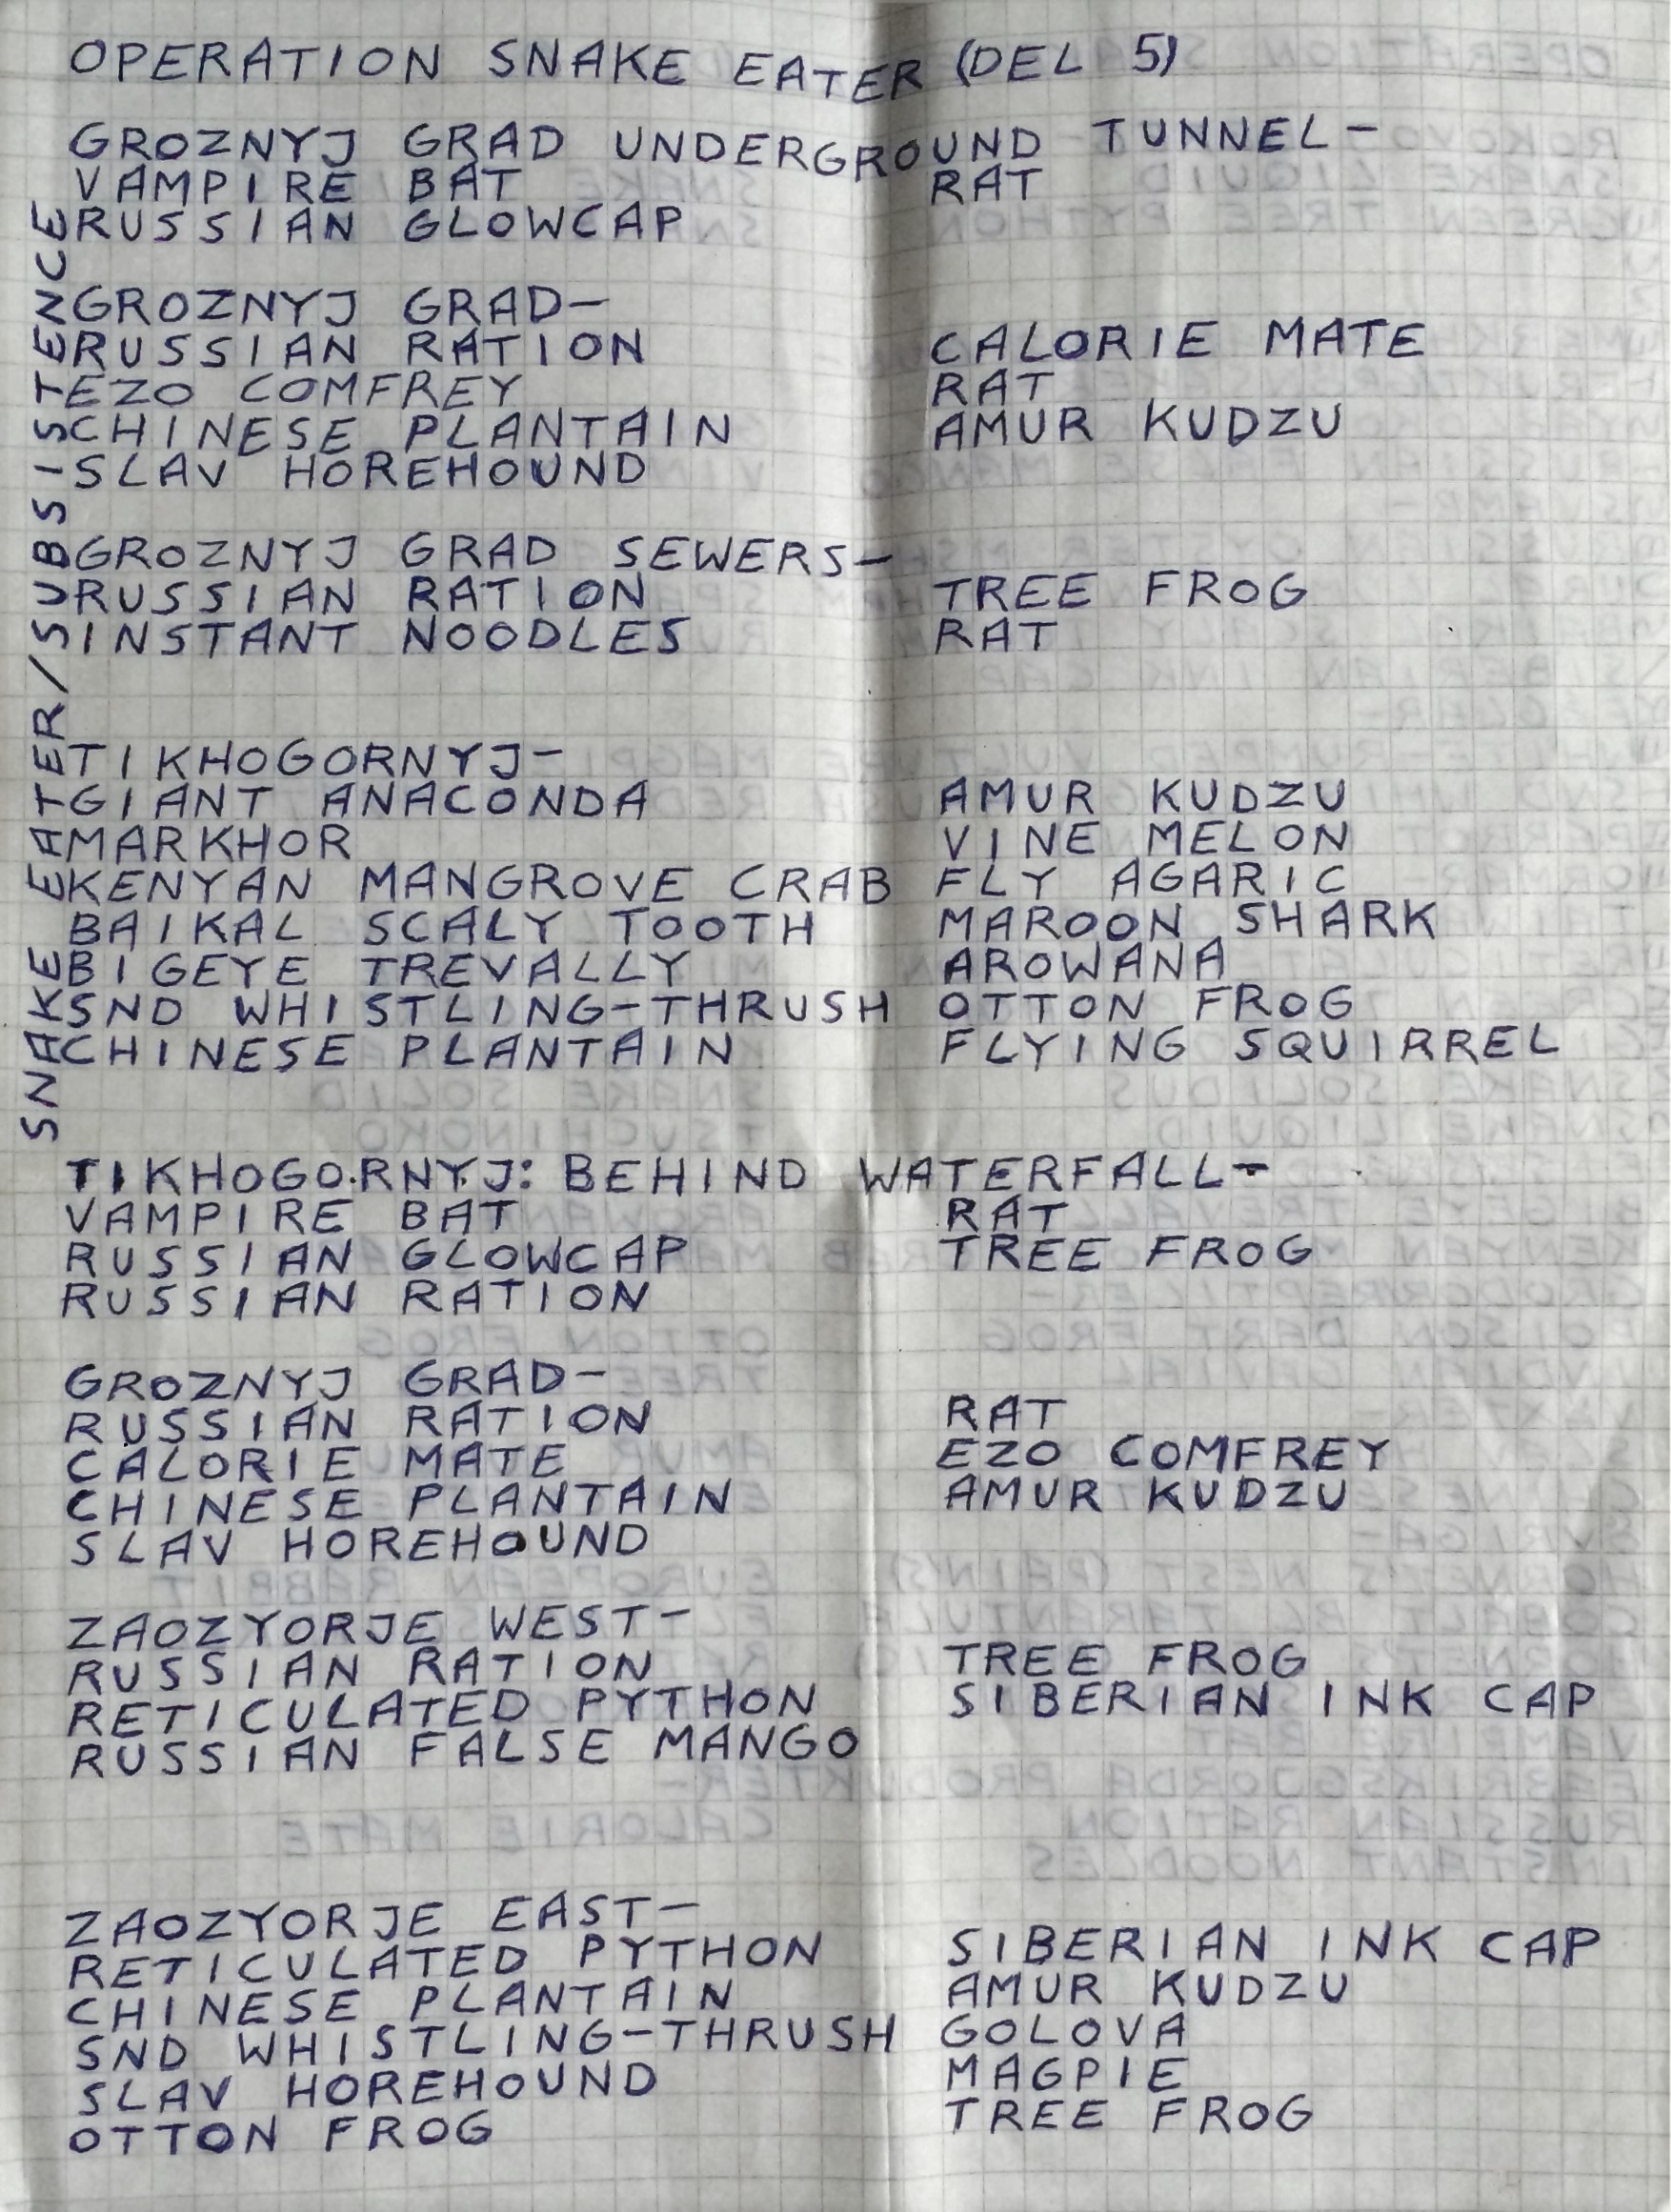 OPERATION SNAKE EATER (DEL 5)
GROZNYJ GRAD UNDERGROUND TUNNEL-
VAMPIRE BAT RAT
RUSSIAN GLOWCAP
GROZNYJ GRAD-
RUSSIAN RATION CALORIE MATE
EZO COMFREY RAT
CHINESE PLANTAIN AMUR KUDZU
SLAV HOREHOUND
GROZNYJ GRAD SEWERS-
RUSSIAN RATION TREE FROG
INSTANT NOODLES RAT
TIKHOGORNYJ-
GIANT ANACONDA AMUR KUDZU
MARKHOR VINE MELON
KENYAN MANGROVE CRAB FLY AGARIC
BAIKAL SCALY TOOTH MAROON SHARK
BIGEYE TREVALLY AROWANA
SND WHISTLING-THRUSH OTTON FROG
CHINESE PLANTAIN FLYING SQUIRREL
TIKHOGORNYJ: BEHIND WATERFALL-
VAMPIRE BAT RAT
RUSSIAN GLOWCAP TREE FROG
RUSSIAN RATION
GROZNYJ GRAD-
RUSSIAN RATION RAT
CALORIE MATE EZO COMFREY
CHINESE PLANTAIN AMUR KUDZU
SLAV HOREHOUND
ZAOZYORJE WEST-
RUSSIAN RATION TREE FROG
RETICULATED PYTHON SIBERIAN INK CAP
RUSSIAN FALSE MANGO
ZAOZYORJE EAST-
RETICULATED PYTHON SIBERIAN INK CAP
CHINESE PLANTAIN AMUR KUDZU
SND WHISTLING-THRUSH GOLOVA
SLAV HOREHOUND MAGPIE
OTTON FROG TREE FROG
SNAKE EATER/SUBSISTENCE